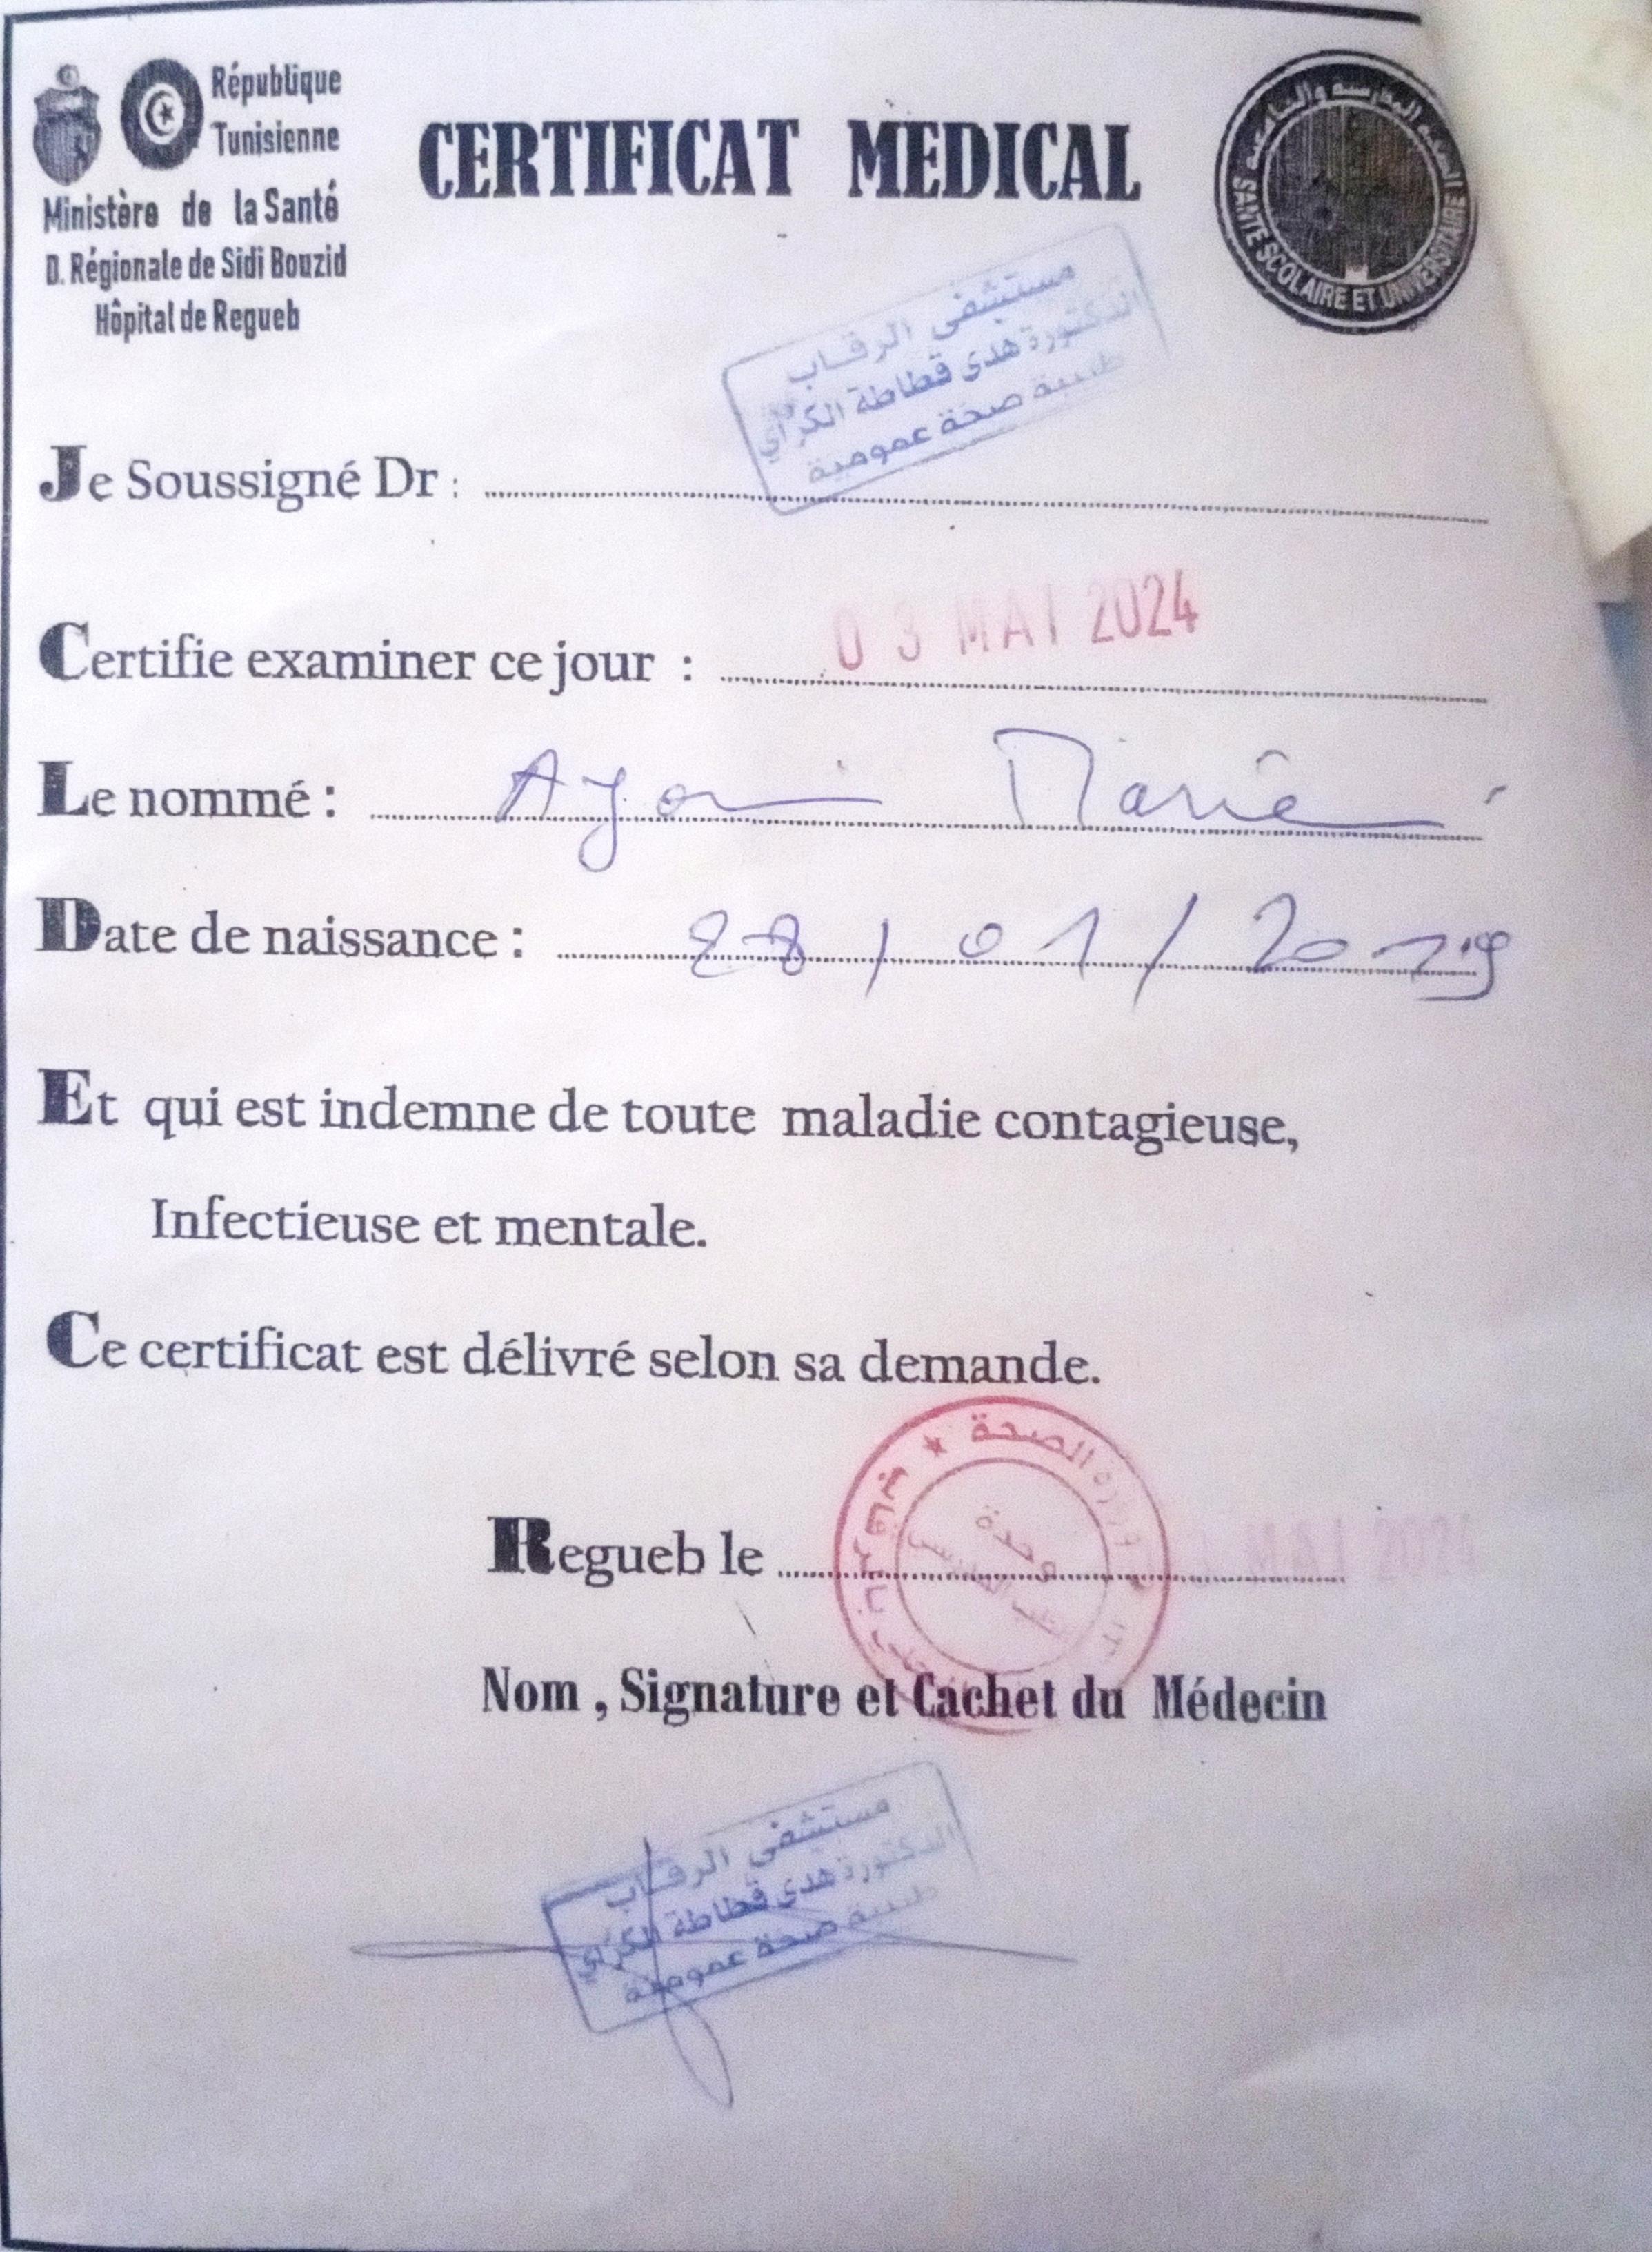 République
Tunisienne
Ministère de la Santé
D. Régionale de Sidi Bouzid
Hôpital de Regueb
CERTIFICAT MEDICAL
SANTE SCOLAIRE ET UNIVERSITAIRE
مستشفى الرقاب
الدكتورة هدى قطاطة الكراي
طبيبة صحة عمومية
Je Soussigné Dr :
Certifie examiner ce jour : 03 MAI 2024
Le nommé :
Date de naissance : 28 / 01 / 2019
Et qui est indemne de toute maladie contagieuse,
Infectieuse et mentale.
Ce certificat est délivré selon sa demande.
وزارة الصحة
وحدة
Regueb le
Nom , Signature et Cachet du Médecin
مستشفى الرقاب
الدكتورة هدى قطاطة الكراي
طبيبة صحة عمومية